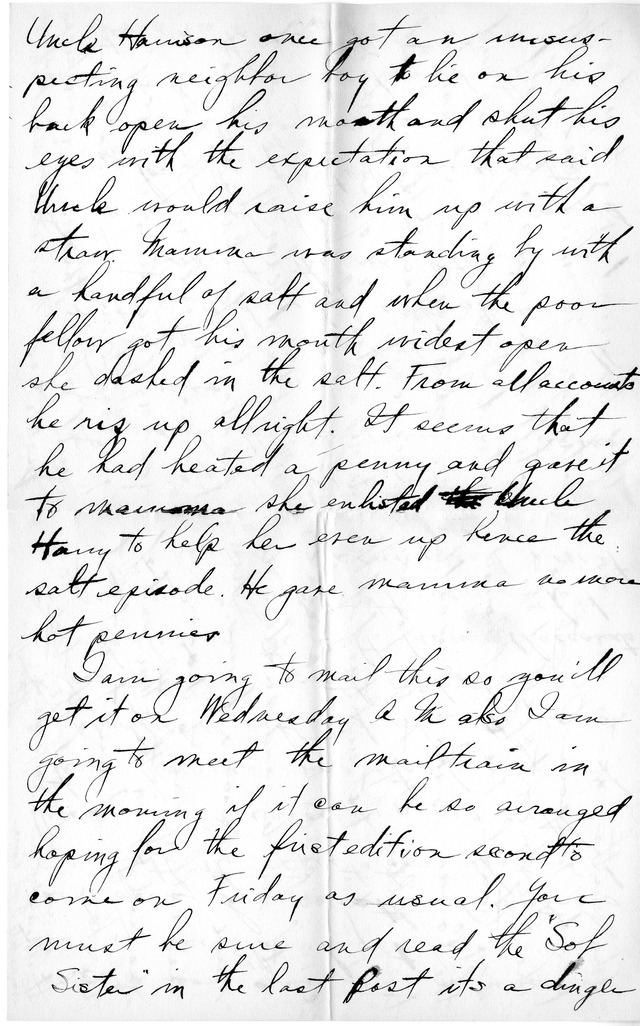 Uncle Harrison once got an unsus-
pecting neighbor boy to lie on his
back open his mouth and shut his
eyes with the expectation that said
Uncle would raise him up with a
straw. Mamma was standing by with
a handful of salt and when the poor
fellow got his mouth widest open
she dashed in the salt. From all accounts
he ris up allright. It seems that
he had heated a penny and gave it
to mamma she enlisted Uncle
Harry to help her even up hence the
salt episode. He gave mamma no more
hot pennies
I am going to mail this so you'll
get it on Wednesday A M also I am
going to meet the mail train in
the morning if it can be so arranged
hoping for the first edition second to
come on Friday as usual. You
must be sure and read the "Sob
Sister" in the last Post its a dinger